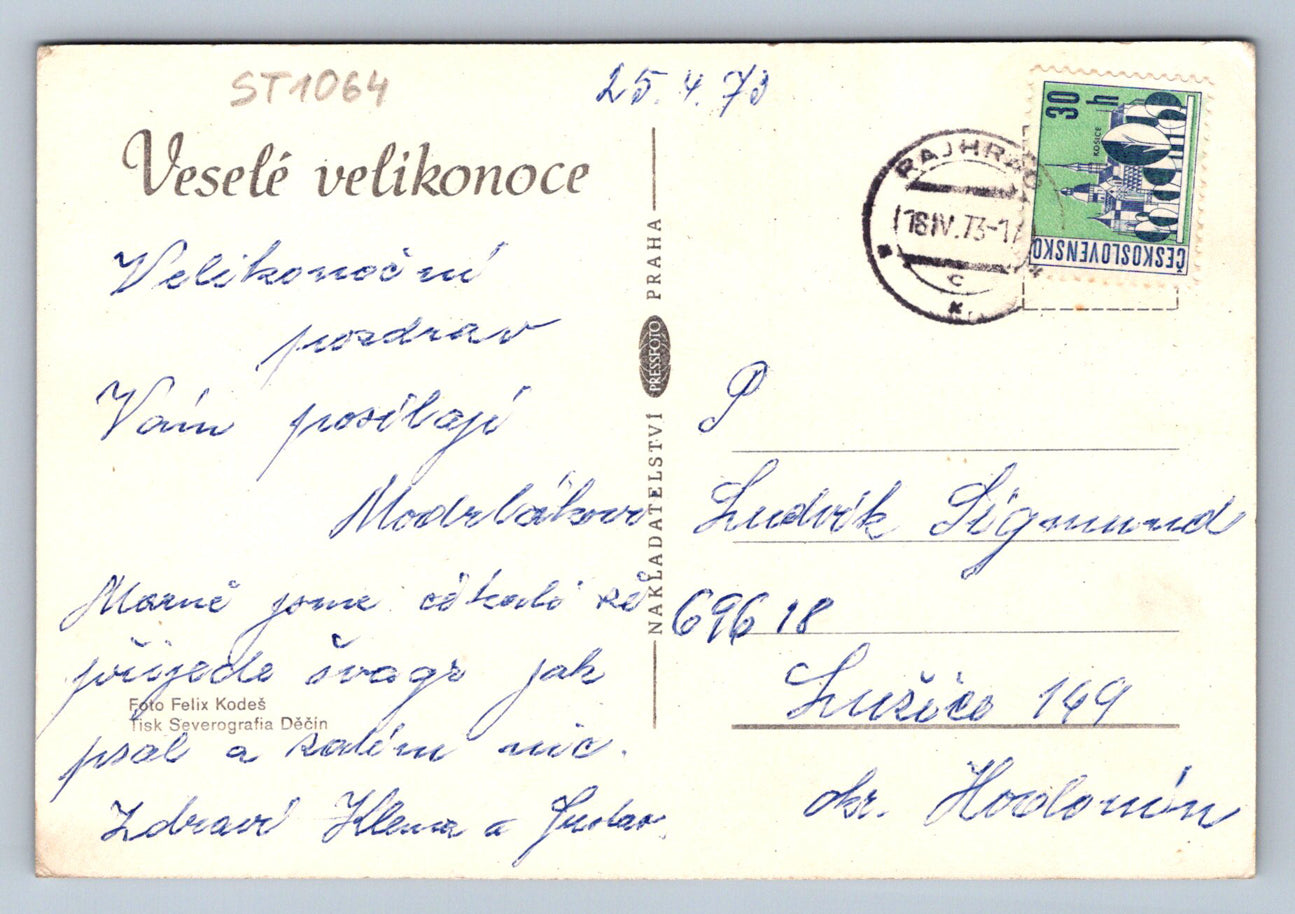 ST1064
25. 4. 73
Veselé velikonoce
Velikonoční
pozdrav
Vám posílají
Modrlákovi
Marně jsme čekali že
přijede švagr jak
psal a zatím nic.
Zdraví Klema a Gustav
Foto Felix Kodeš
Tisk Severografia Děčín
NAKLADATELSTVÍ PRESSFOTO PRAHA
RAJHRAD
18.IV.73-17
c
30 h
KOŠICE
ČESKOSLOVENSKO
P
Ludvík Sigmund
696 18
Lužice 149
okr. Hodonín